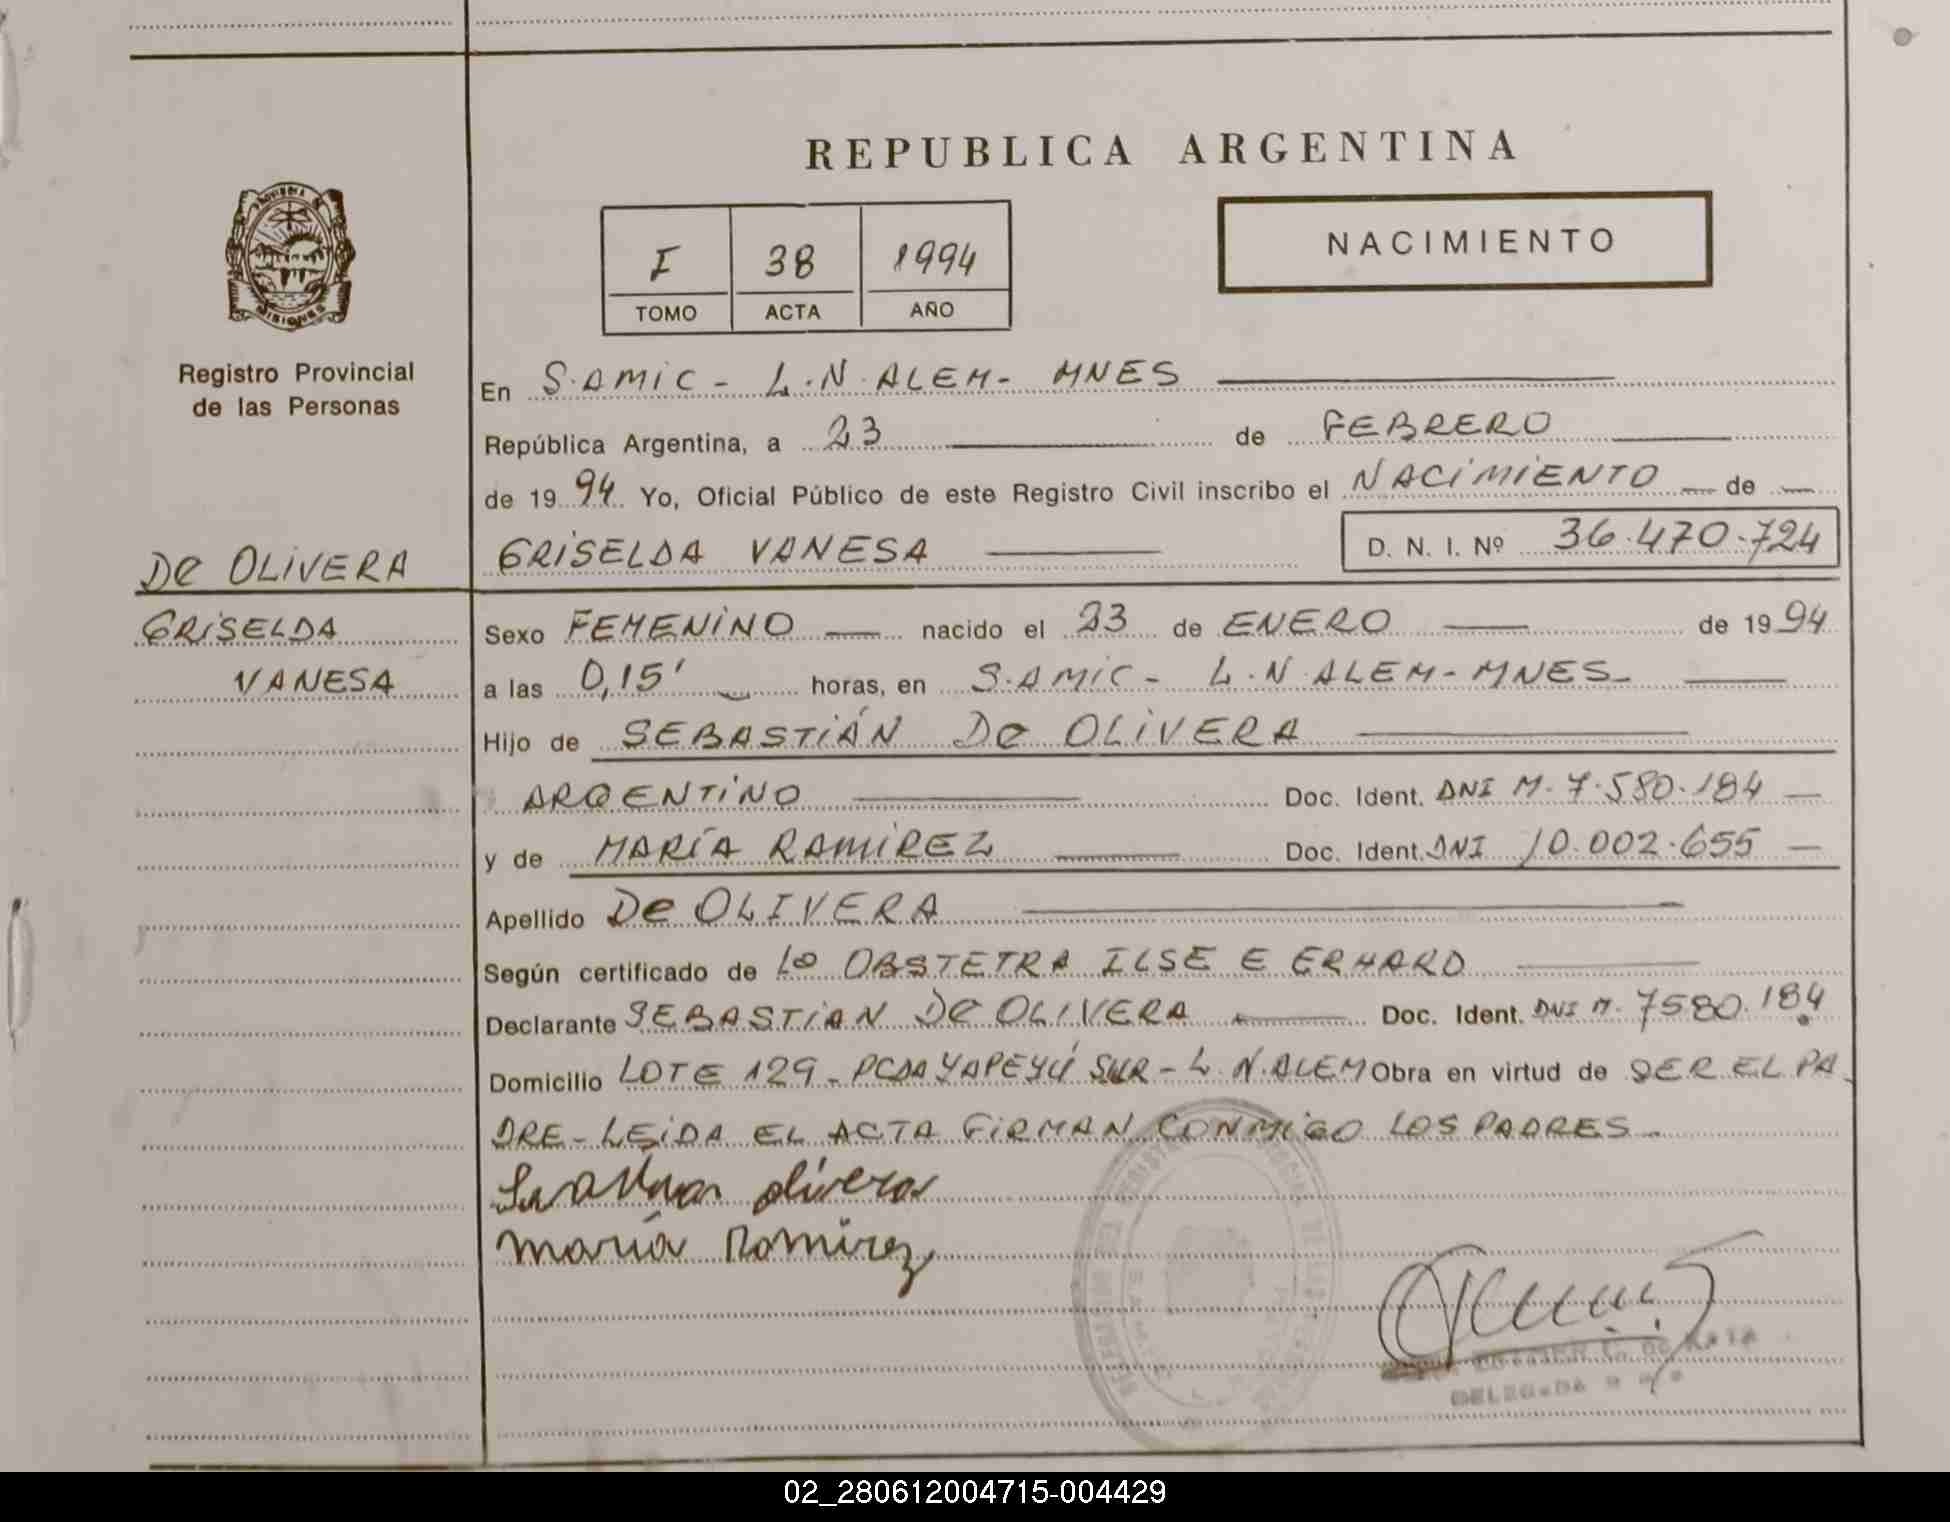 REPUBLICA ARGENTINA
MISIONES
Registro Provincial
de las Personas
I 38 1994
TOMO ACTA AÑO
NACIMIENTO
En S.AMIC - L.N.ALEM - MNES
República Argentina, a 23 de FEBRERO
de 1994 Yo, Oficial Público de este Registro Civil inscribo el NACIMIENTO de
GRISELDA VANESA D. N. I. Nº 36.470.724
De OLIVERA
GRISELDA
VANESA
Sexo FEMENINO nacido el 23 de ENERO de 1994
a las 0,15' horas, en S.AMIC - L.N.ALEM - MNES
Hijo de SEBASTIÁN De OLIVERA
ARGENTINO Doc. Ident. DNI M. 7.580.184
y de MARÍA RAMIREZ Doc. Ident. DNI 10.002.655
Apellido De OLIVERA
Según certificado de LA OBSTETRA ILSE E ERHARD
Declarante SEBASTIAN De OLIVERA Doc. Ident. DNI M. 7580.184
Domicilio LOTE 129 - PCDA YAPEYÚ SUR - L.N.ALEM Obra en virtud de SER EL PA
DRE - LEIDA EL ACTA FIRMAN CONMIGO LOS PADRES
olivera
maria Ramirez
DELEGADA
02_280612004715-004429